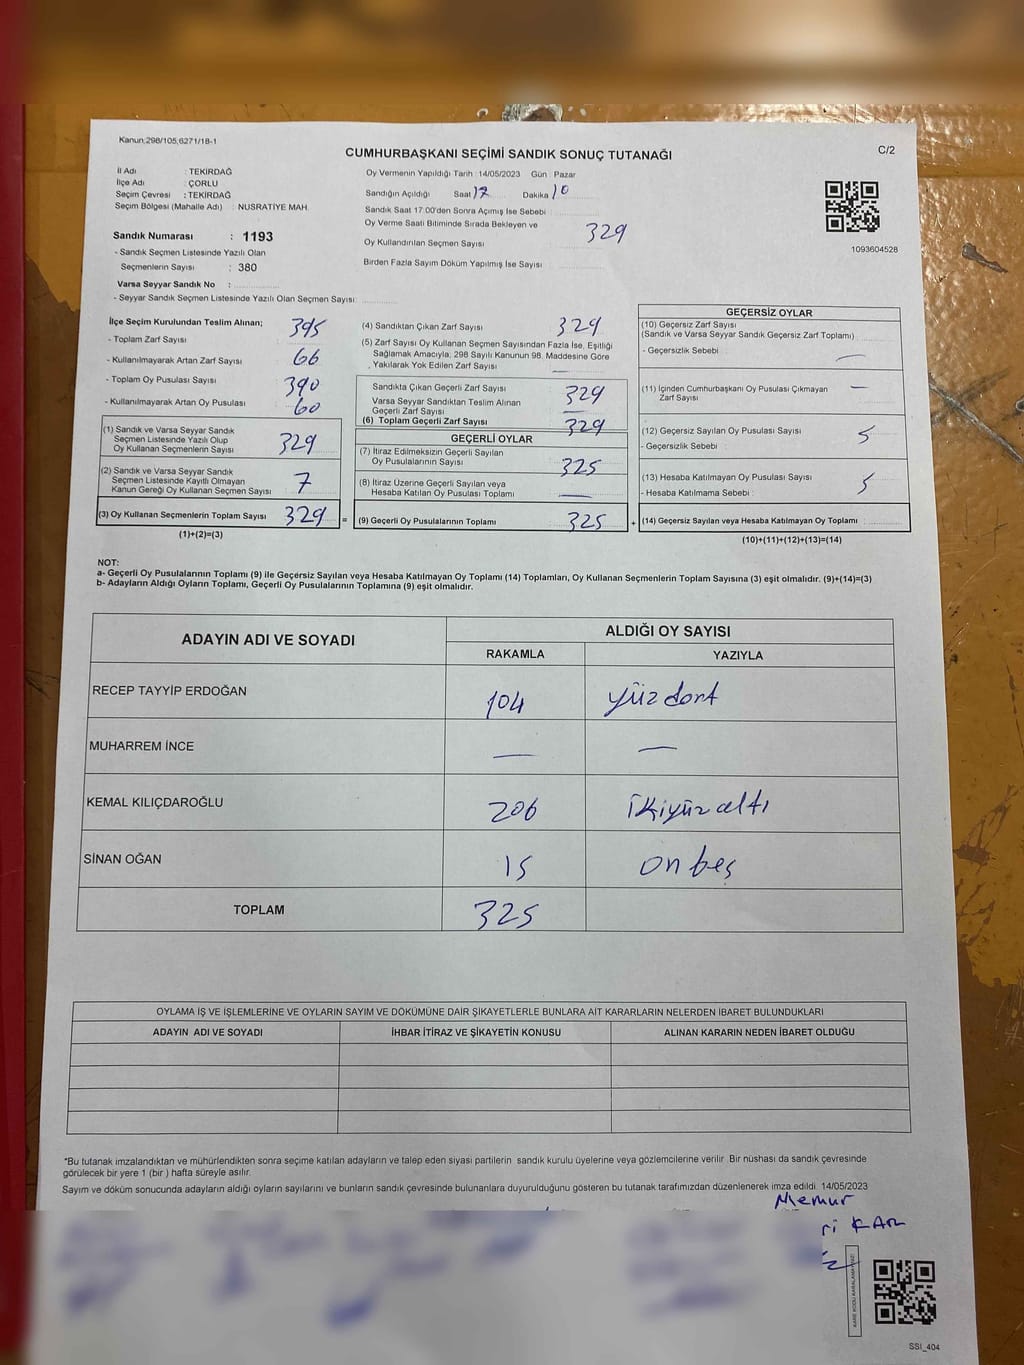 Kanun;298/105,6271/18-1
CUMHURBAŞKANI SEÇİMİ SANDIK SONUÇ TUTANAĞI
C/2
İl Adı : TEKİRDAĞ
İlçe Adı : ÇORLU
Seçim Çevresi : TEKİRDAĞ
Seçim Bölgesi (Mahalle Adı) : NUSRATİYE MAH.
Sandık Numarası : 1193
- Sandık Seçmen Listesinde Yazılı Olan
Seçmenlerin Sayısı : 380
Varsa Seyyar Sandık No :
- Seyyar Sandık Seçmen Listesinde Yazılı Olan Seçmen Sayısı:
Oy Vermenin Yapıldığı Tarih : 14/05/2023 Gün : Pazar
Sandığın Açıldığı Saat 17 Dakika 10
Sandık Saat 17:00'den Sonra Açımış İse Sebebi
Oy Verme Saati Bitiminde Sırada Bekleyen ve
Oy Kullandırılan Seçmen Sayısı 329
Birden Fazla Sayım Döküm Yapılmış İse Sayısı
1093604528
İlçe Seçim Kurulundan Teslim Alınan;
- Toplam Zarf Sayısı 395
- Kullanılmayarak Artan Zarf Sayısı 66
- Toplam Oy Pusulası Sayısı 390
- Kullanılmayarak Artan Oy Pusulası 60
(1) Sandık ve Varsa Seyyar Sandık
Seçmen Listesinde Yazılı Olup
Oy Kullanan Seçmenlerin Sayısı 329
(2) Sandık ve Varsa Seyyar Sandık
Seçmen Listesinde Kayıtlı Olmayan
Kanun Gereği Oy Kullanan Seçmen Sayısı 7
(3) Oy Kullanan Seçmenlerin Toplam Sayısı 329 =
(1)+(2)=(3)
(4) Sandıktan Çıkan Zarf Sayısı 329
(5) Zarf Sayısı Oy Kullanan Seçmen Sayısından Fazla İse, Eşitliği
Sağlamak Amacıyla; 298 Sayılı Kanunun 98. Maddesine Göre
Yakılarak Yok Edilen Zarf Sayısı —
Sandıkta Çıkan Geçerli Zarf Sayısı 329
Varsa Seyyar Sandıktan Teslim Alınan
Geçerli Zarf Sayısı —
(6) Toplam Geçerli Zarf Sayısı 329
GEÇERLİ OYLAR
(7) İtiraz Edilmeksizin Geçerli Sayılan
Oy Pusulalarının Sayısı 325
(8) İtiraz Üzerine Geçerli Sayılan veya
Hesaba Katılan Oy Pusulası Toplamı —
(9) Geçerli Oy Pusulalarının Toplamı 325 +
GEÇERSİZ OYLAR
(10) Geçersiz Zarf Sayısı
(Sandık ve Varsa Seyyar Sandık Geçersiz Zarf Toplamı)
- Geçersizlik Sebebi : —
(11) İçinden Cumhurbaşkanı Oy Pusulası Çıkmayan —
Zarf Sayısı
(12) Geçersiz Sayılan Oy Pusulası Sayısı 5
- Geçersizlik Sebebi :
(13) Hesaba Katılmayan Oy Pusulası Sayısı 5
- Hesaba Katılmama Sebebi :
(14) Geçersiz Sayılan veya Hesaba Katılmayan Oy Toplamı
(10)+(11)+(12)+(13)=(14)
NOT:
a- Geçerli Oy Pusulalarının Toplamı (9) ile Geçersiz Sayılan veya Hesaba Katılmayan Oy Toplamı (14) Toplamları, Oy Kullanan Seçmenlerin Toplam Sayısına (3) eşit olmalıdır. (9)+(14)=(3)
b- Adayların Aldığı Oyların Toplamı, Geçerli Oy Pusulalarının Toplamına (9) eşit olmalıdır.
ADAYIN ADI VE SOYADI
ALDIĞI OY SAYISI
RAKAMLA YAZIYLA
RECEP TAYYİP ERDOĞAN 104 yüz dört
MUHARREM İNCE — —
KEMAL KILIÇDAROĞLU 206 ikiyüz altı
SİNAN OĞAN 15 on beş
TOPLAM 325
OYLAMA İŞ VE İŞLEMLERİNE VE OYLARIN SAYIM VE DÖKÜMÜNE DAİR ŞİKAYETLERLE BUNLARA AİT KARARLARIN NELERDEN İBARET BULUNDUKLARI
ADAYIN ADI VE SOYADI İHBAR İTİRAZ VE ŞİKAYETİN KONUSU ALINAN KARARIN NEDEN İBARET OLDUĞU
*Bu tutanak imzalandıktan ve mühürlendikten sonra seçime katılan adayların ve talep eden siyasi partilerin sandık kurulu üyelerine veya gözlemcilerine verilir. Bir nüshası da sandık çevresinde
görülecek bir yere 1 (bir) hafta süreyle asılır.
Sayım ve döküm sonucunda adayların aldığı oyların sayılarını ve bunların sandık çevresinde bulunanlara duyurulduğunu gösteren bu tutanak tarafımızdan düzenlenerek imza edildi. 14/05/2023
Memur
SSI_404